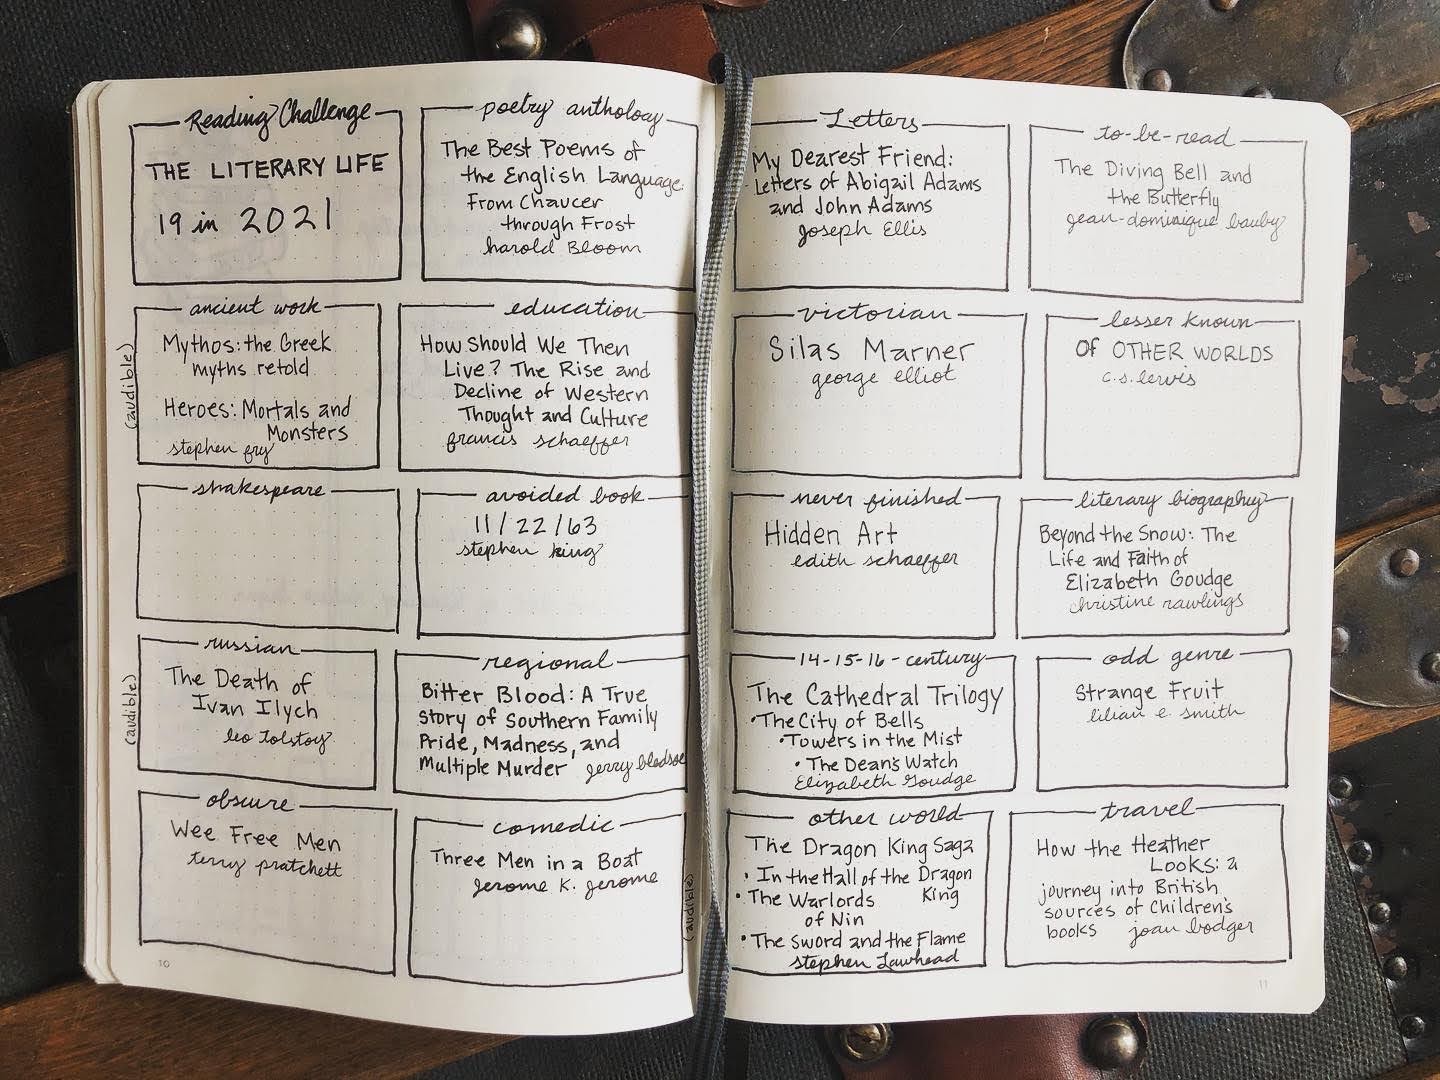 Reading Challenge
THE LITERARY LIFE
19 in 2021
poetry anthology
The Best Poems of
the English Language:
From Chaucer
through Frost
harold Bloom
ancient work
(audible)
Mythos: the Greek
myths retold
Heroes: Mortals and
Monsters
stephen fry
education
How Should We Then
Live? The Rise and
Decline of Western
Thought and Culture
francis schaeffer
shakespeare
avoided book
11/22/63
stephen king
russian
(audible)
The Death of
Ivan Ilych
leo tolstoy
regional
Bitter Blood: A True
Story of Southern Family
Pride, Madness, and
Multiple Murder jerry bledsoe
obscure
Wee Free Men
terry pratchett
comedic
Three Men in a Boat
jerome k. jerome
(audible)
10
Letters
My Dearest Friend:
Letters of Abigail Adams
and John Adams
joseph Ellis
to-be-read
The Diving Bell and
the Butterfly
jean-dominique bauby
victorian
Silas Marner
george elliot
lesser known
Of OTHER WORLDS
c.s. lewis
never finished
Hidden Art
edith schaeffer
literary biography
Beyond the Snow: The
Life and Faith of
Elizabeth Goudge
christine rawlings
14-15-16-century
The Cathedral Trilogy
• The City of Bells
• Towers in the Mist
• The Dean's Watch
Elizabeth Goudge
odd genre
Strange Fruit
lilian e. smith
other world
The Dragon King Saga
• In the Hall of the Dragon
King
• The Warlords
of Nin
• The Sword and the Flame
stephen Lawhead
travel
How the Heather
Looks: a
journey into British
sources of Children's
books joan bodger
11